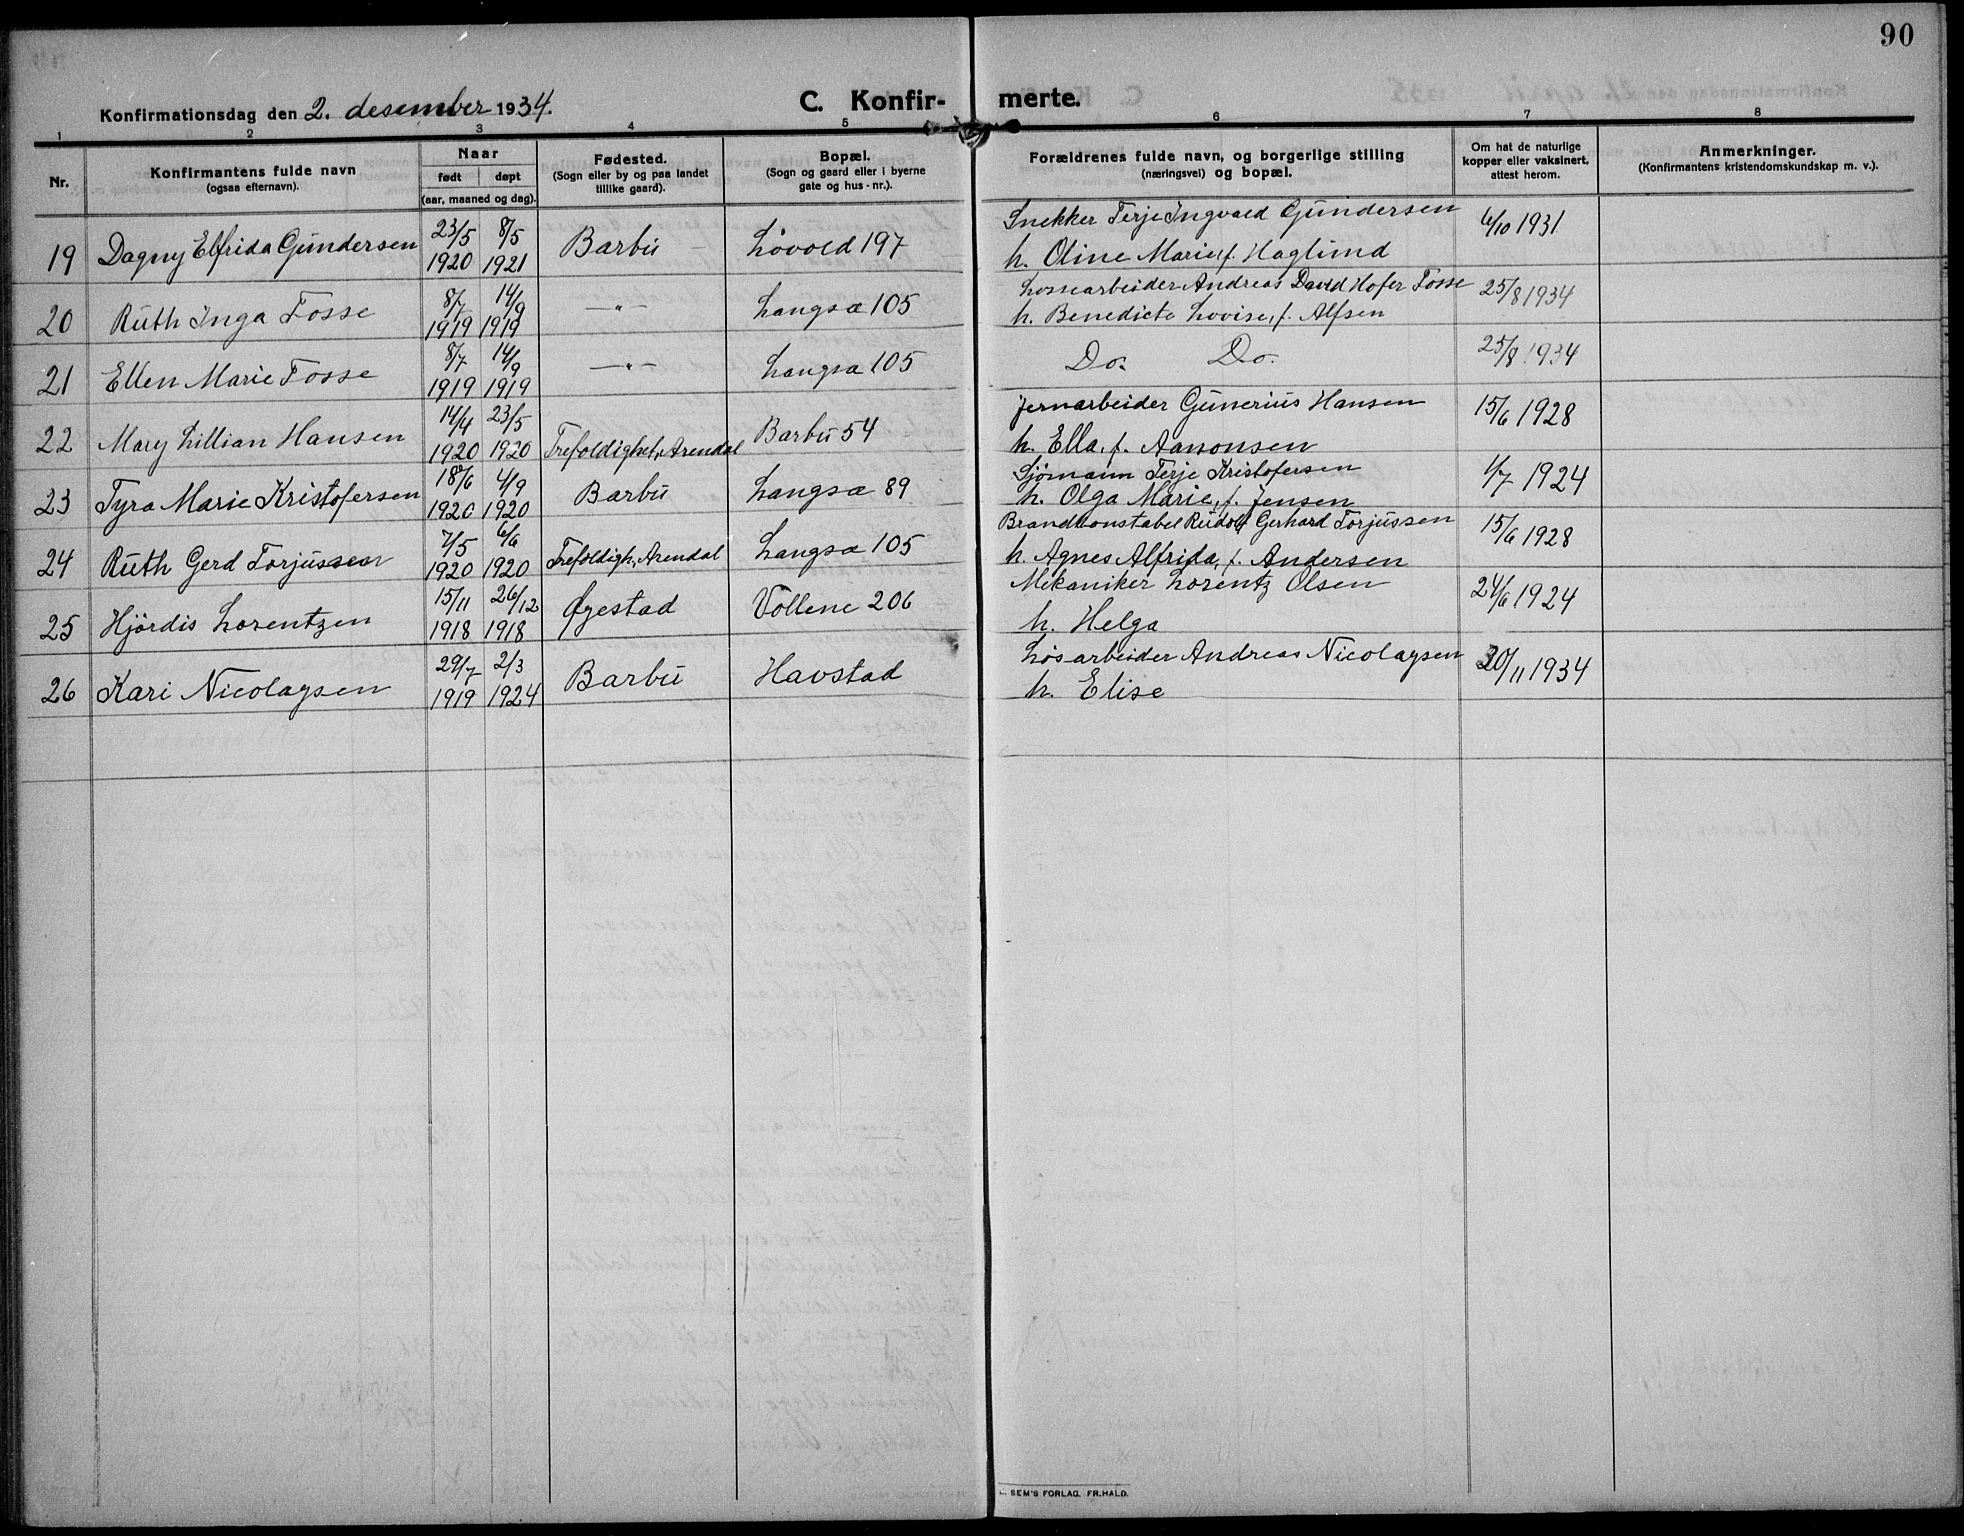 90
Konfirmationsdag den 2. desember 1934.
C. Konfir- merte.
1 2 3 4 5 6 7 8
Nr.
Konfirmantens fulde navn
(ogsaa efternavn).
Naar
født døpt
(aar, maaned og dag).
Fødested.
(Sogn eller by og paa landet
tillike gaard).
Bopæl.
(Sogn og gaard eller i byerne
gate og hus-nr.).
Forældrenes fulde navn, og borgerlige stilling
(næringsvei) og bopæl.
Om hat de naturlige
kopper eller vaksinert,
attest herom.
Anmerkninger.
(Konfirmantens kristendomskundskap m. v.).
19 Dagny Elfrida Gundersen 23/5 1920 8/5 1921 Barbu Løvold 197 Snekker Terje Ingvald Gundersen 6/10 1931
h. Oline Marie, f. Haglund
20 Ruth Inga Fosse 8/7 1919 14/9 1919 —"— Langsæ 105 Lossearbeider Andreas David Hofer Fosse 25/8 1934
h. Benedicte Lovise, f. Alfsen
21 Ellen Marie Fosse 8/7 1919 14/9 1919 —"— Langsæ 105 Do. Do. 25/8 1934
22 Mary Lillian Hansen 14/4 1920 23/5 1920 Trefoldighet, Arendal Barbu 54 Jernarbeider Gunerius Hansen 15/6 1928
h. Ella, f. Aanonsen
23 Tyra Marie Kristofersen 18/6 1920 4/9 1920 Barbu Langsæ 89 Sjømann Terje Kristofersen 1/7 1924
h. Olga Marie, f. Jensen
24 Ruth Gerd Torjussen 7/5 1920 6/6 1920 Trefoldigh., Arendal Langsæ 105 Brandkonstabel Rudolf Gerhard Torjussen 15/6 1928
h. Agnes Alfrida, f. Andersen
25 Hjördis Lorentzen 15/11 1918 26/12 1918 Øyestad Vollene 206 Mekaniker Lorentz Olsen 24/6 1924
h. Helga
26 Kari Nicolaysen 29/7 1919 2/3 1924 Barbu Havstad Løsarbeider Andreas Nicolaysen 30/11 1934
h. Elise
SEM'S FORLAG, FR.HALD.